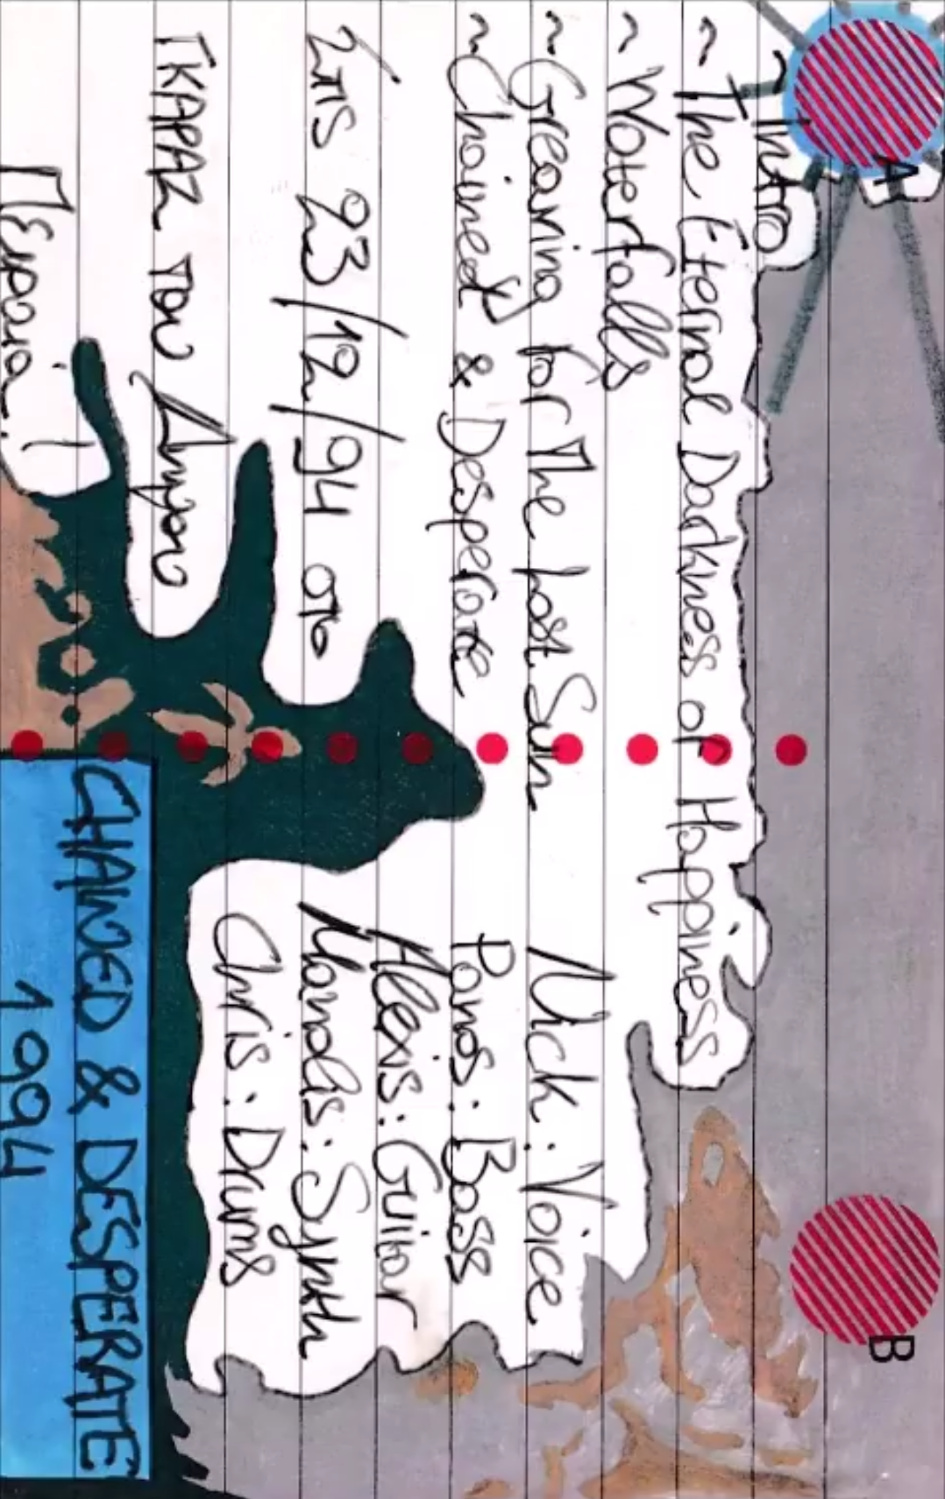 A
B
~ Intro
~ The Eternal Darkness of Happiness
~ Waterfalls
~ Greaming for The Lost Sun
~ Chained & Desperate
Στις 23/12/94 στο
ΓΚΑΡΑΖ του Δημου
Πειραια!
Nick: Voice
Panos: Bass
Alexis: Guitar
Manolis: Synth
Chris: Drums
CHAINED & DESPERATE
1994